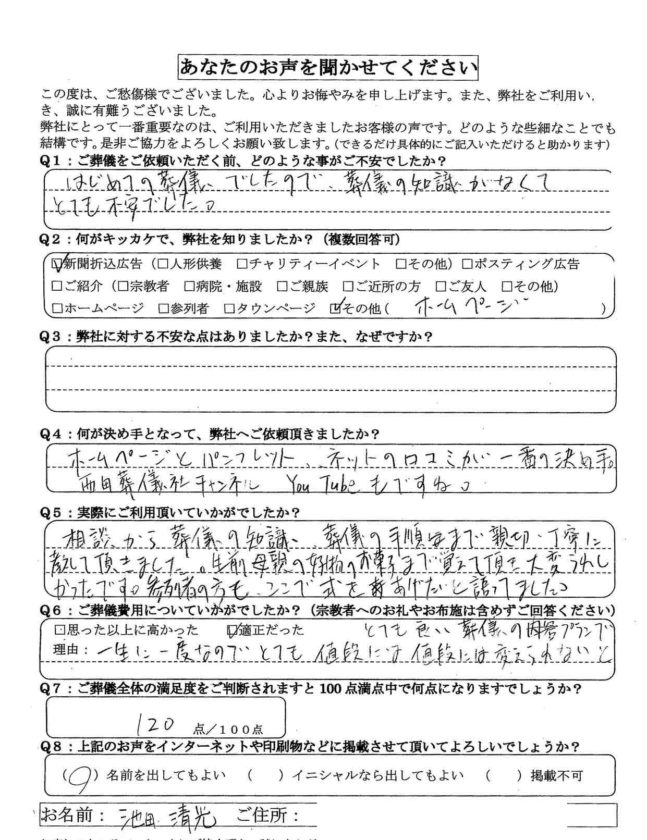 あなたのお声を聞かせてください
この度は、ご愁傷様でございました。心よりお悔やみを申し上げます。また、弊社をご利用い.
き、誠に有難うございました。
弊社にとって一番重要なのは、ご利用いただきましたお客様の声です。どのような些細なことでも
結構です。是非ご協力をよろしくお願い致します。(できるだけ具体的にご記入いただけると助かります)
Q1:ご葬儀をご依頼いただく前、どのような事がご不安でしたか?
はじめての葬儀でしたので、葬儀の知識がなくて
とても不安でした。
Q2:何がキッカケで、弊社を知りましたか?(複数回答可)
☑新聞折込広告(□人形供養 □チャリティーイベント □その他)□ポスティング広告
□ご紹介(□宗教者 □病院・施設 □ご親族 □ご近所の方 □ご友人 □その他)
□ホームページ □参列者 □タウンページ ☑その他(ホームページ)
Q3:弊社に対する不安な点はありましたか?また、なぜですか?
Q4:何が決め手となって、弊社へご依頼頂きましたか?
ホームページとパンフレット、ネットの口コミが一番の決め手。
西田葬儀社チャンネル YouTubeもですね。
Q5:実際にご利用頂いていかがでしたか?
相談から葬儀の知識、葬儀の手順まで親切・丁寧に
教えて頂きました。生前母親の好物のお菓子まで覚えて頂き大変うれし
かったです。参列者の方も、ここで式をあげたいと語ってました。
Q6:ご葬儀費用についていかがでしたか?(宗教者へのお礼やお布施は含めずご回答ください)
□思った以上に高かった ☑適正だった とても 葬儀の内容プランで
理由:一生に一度なのでとても値段には値段には変えられないと
Q7:ご葬儀全体の満足度をご判断されますと100点満点中で何点になりますでしょうか?
120 点/100点
Q8:上記のお声をインターネットや印刷物などに掲載させて頂いてよろしいでしょうか?
(○)名前を出してもよい ( )イニシャルなら出してもよい ( )掲載不可
お名前:池田 清光 ご住所: